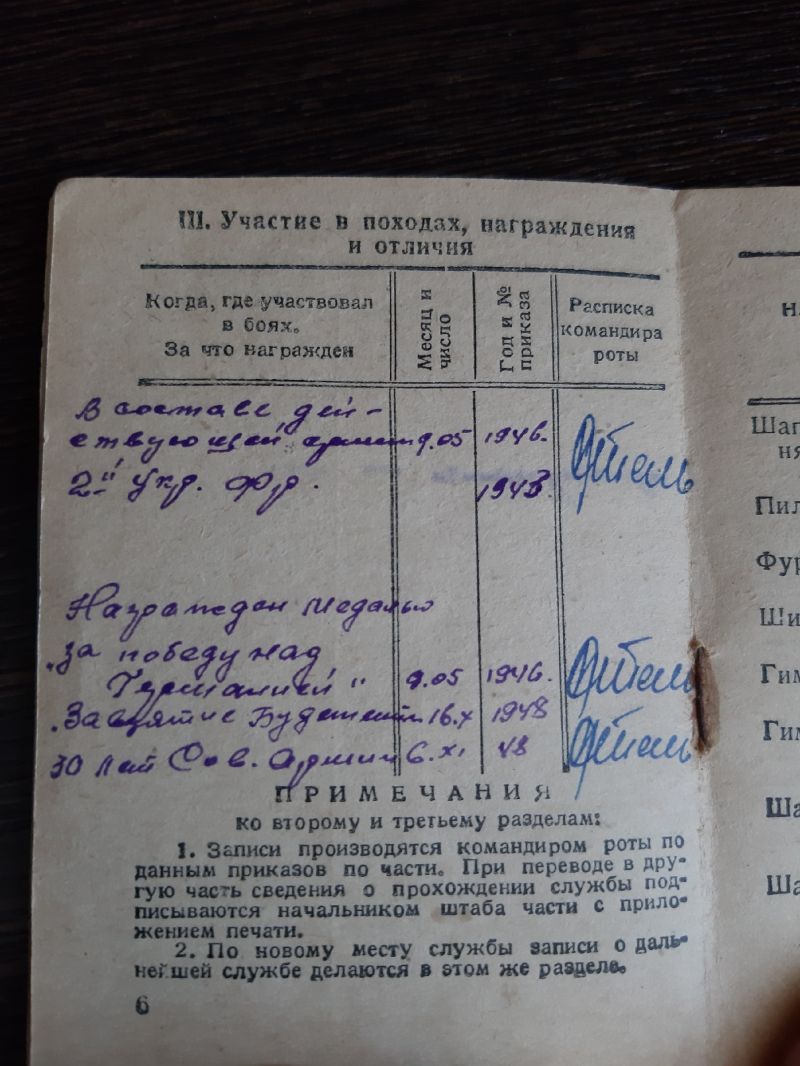 III. Участие в походах, награждения
и отличия
Когда, где участвовал
в боях.
За что награжден
Месяц и
число
Год и №
приказа
Расписка
командира
роты
В составе дей-
ствующей армии 9.05 1946.
2й Укр. Фр. 1943.
Награжден медалью
"за победу над
Германией" 9.05 1946.
"За взятие Будапешта 16.X 1948
30 лет Сов. Армии 6.XI 48
ПРИМЕЧАНИЯ
ко второму и третьему разделам:
1. Записи производятся командиром роты по
данным приказов по части. При переводе в дру-
гую часть сведения о прохождении службы под-
писываются начальником штаба части с прило-
жением печати.
2. По новому месту службы записи о даль-
нейшей службе делаются в этом же разделе.
6
Пил
Фур
Ши
Гим
Гим
Ша
Ша